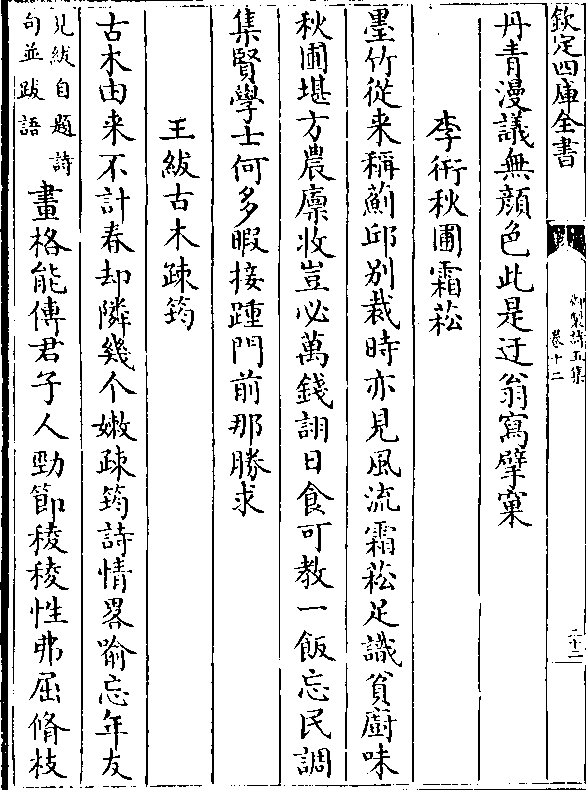 欽定四庫全書
御製詩五集
卷十二
二十二
丹青漫議無顔色此是迂翁寫擘窠
李衎秋圃霜菘
墨竹從来稱薊邱别裁時亦見風流霜菘足識貧厨味
秋圃堪方農廪收豈必萬錢詡日食可教一飯忘民調
集賢學士何多暇接踵門前那勝求
王紱古木疎筠
古木由来不計春却隣幾个嫩疎筠詩情畧喻忘年友
見紱自題詩
句並跋語
畫格能傳君子人勁節稜稜性弗屈脩枝